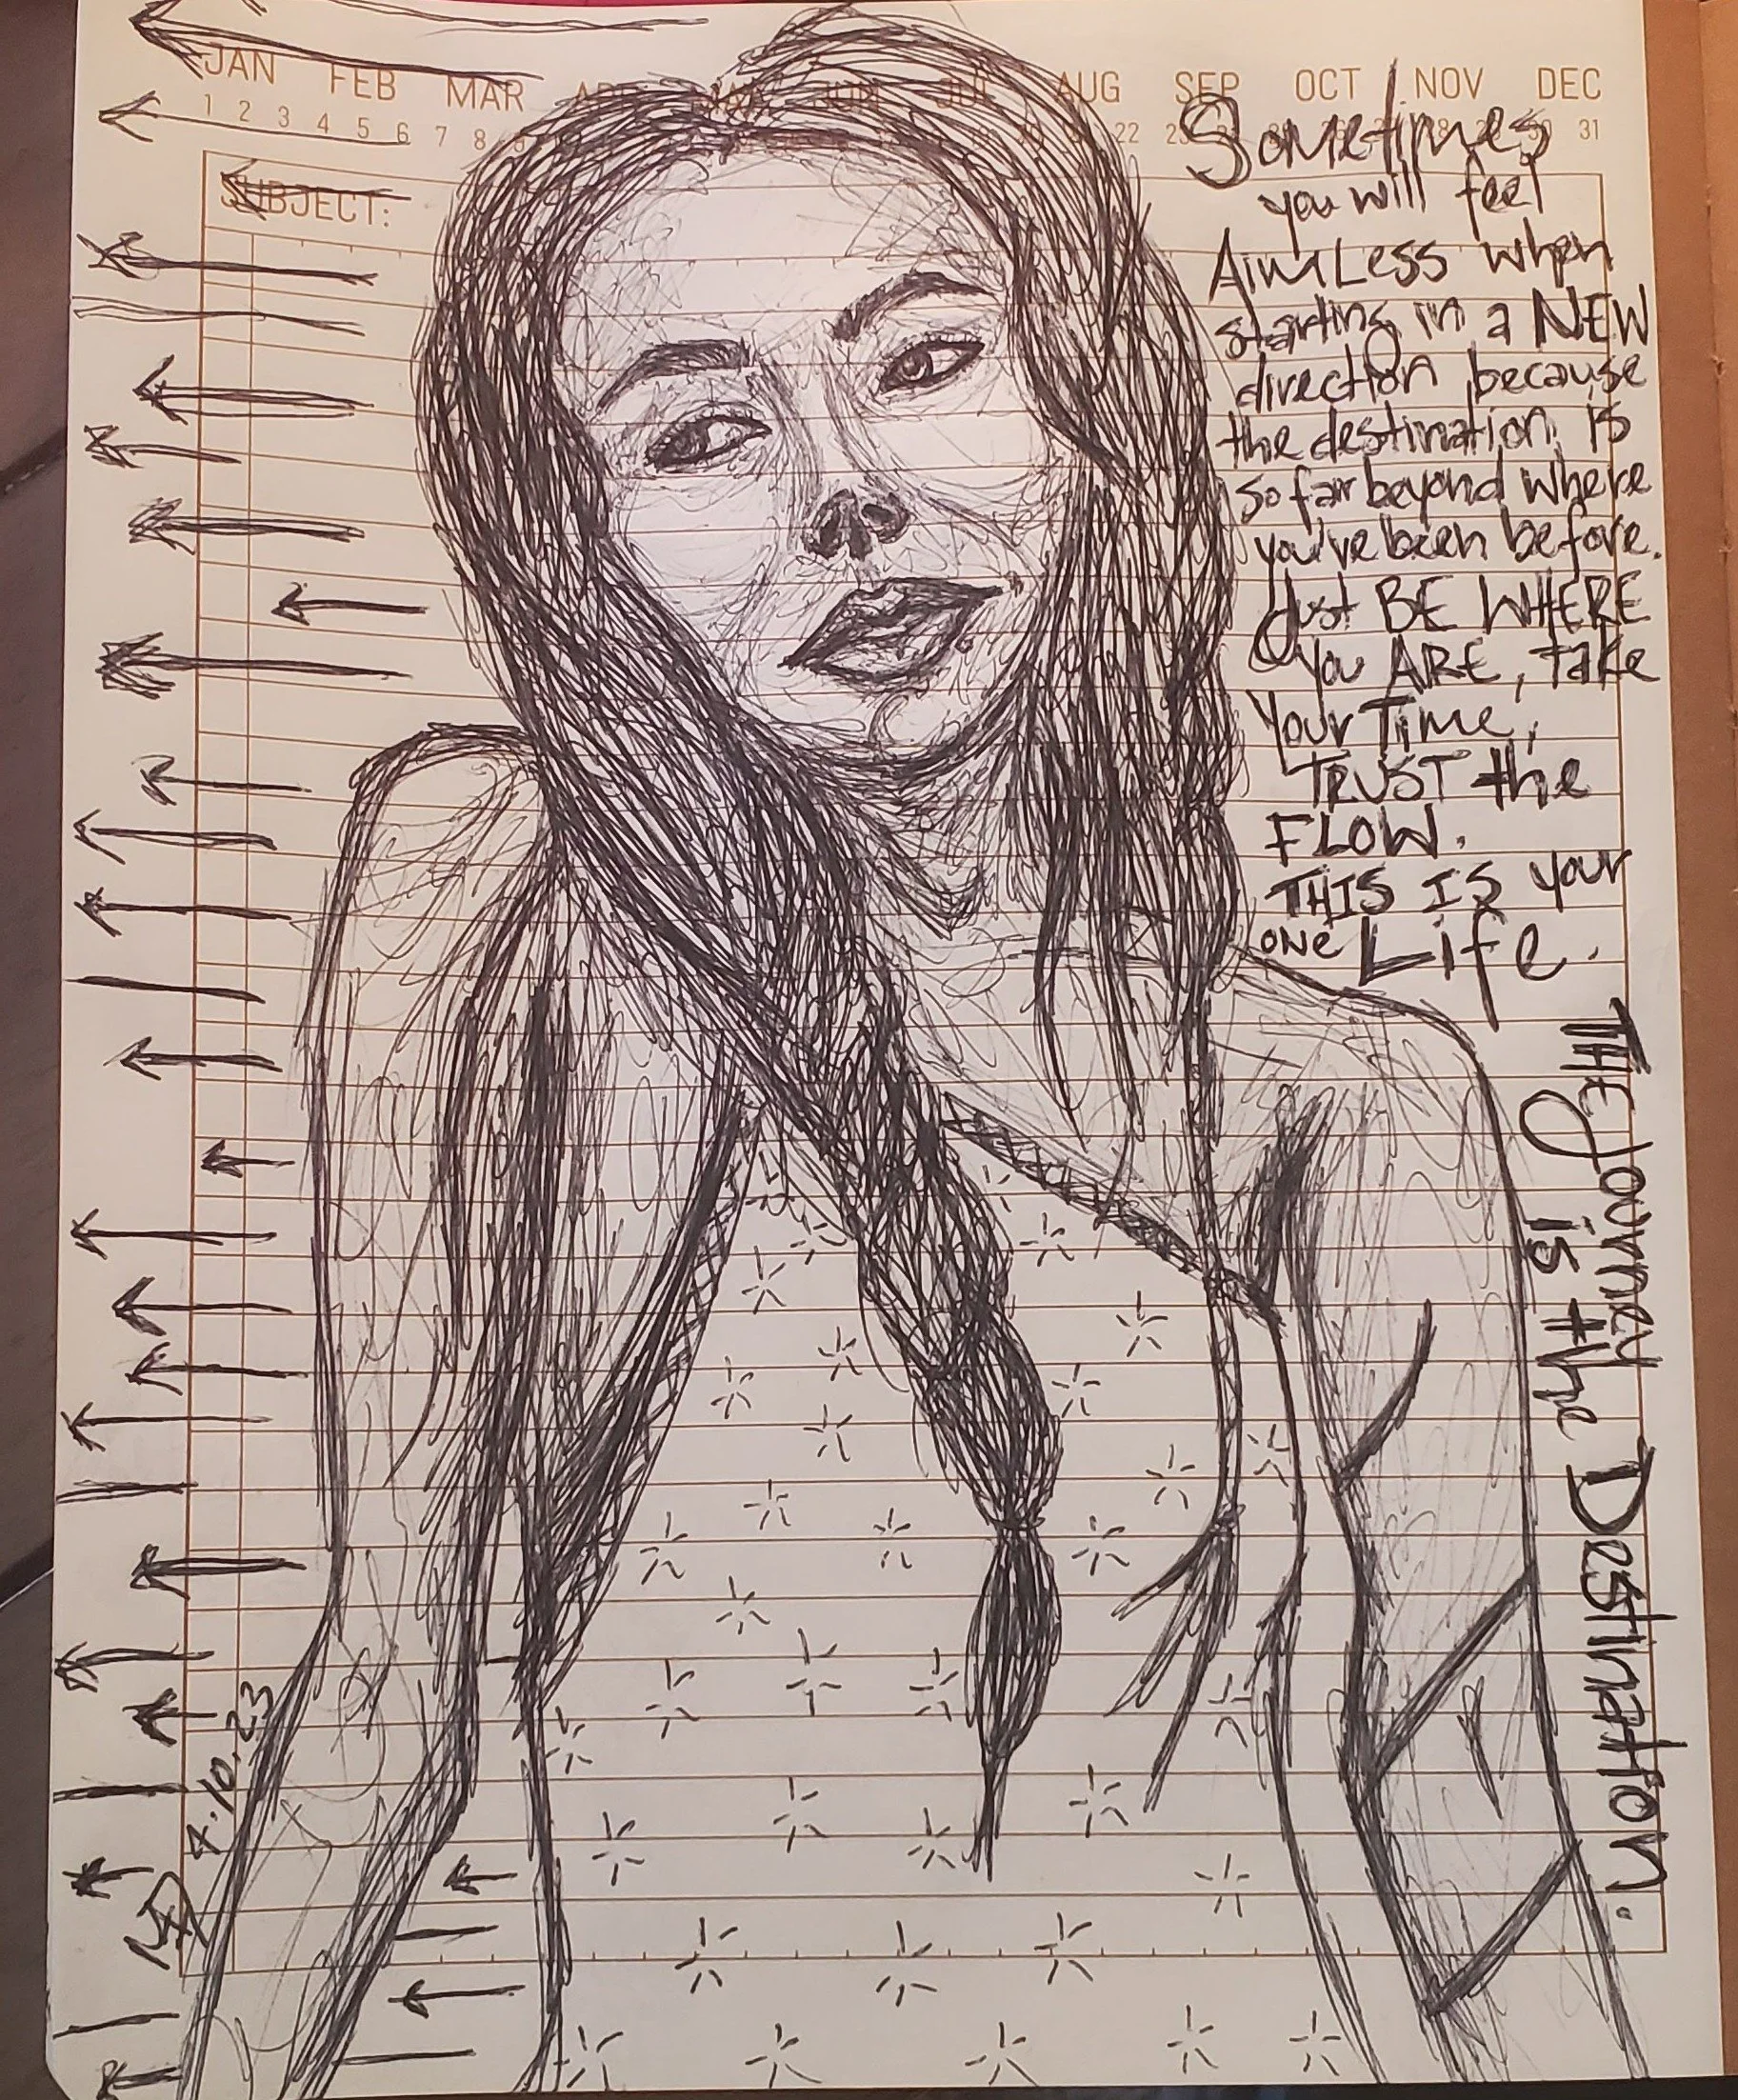 JAN FEB MAR APR MAY JUN JUL AUG SEP OCT NOV DEC
1 2 3 4 5 6 7 8 9 22 23 28 29 30 31
SUBJECT:
Sometimes
you will feel
AimLess when
starting in a NEW
direction because
the destination is
so far beyond where
you've been before.
Just BE WHERE
You ARE, Take
Your Time,
TRUST the
FLOW.
THIS IS your
one Life.
THE Journey
is the Destination.
4.10.23